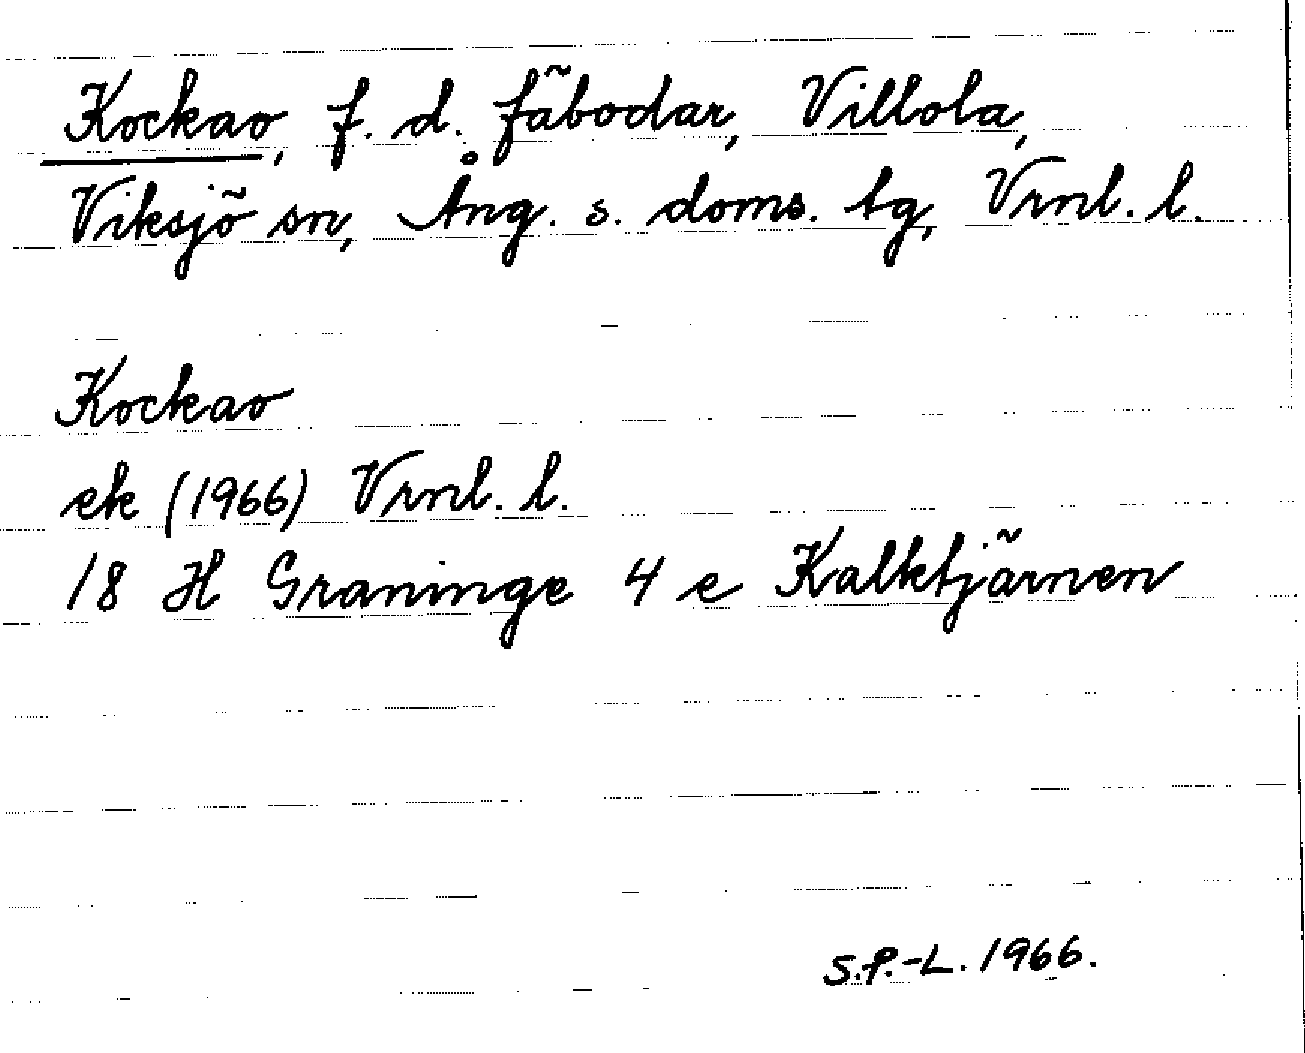 Kockao, f. d. fäbodar, Villola,
Viksjö sn, Ång. s. doms. tg, Vrnl. l.
Kockao
ek (1966) Vrnl. l.
18 H Graninge 4 e Kalktjärnen
S.P.-L. 1966.